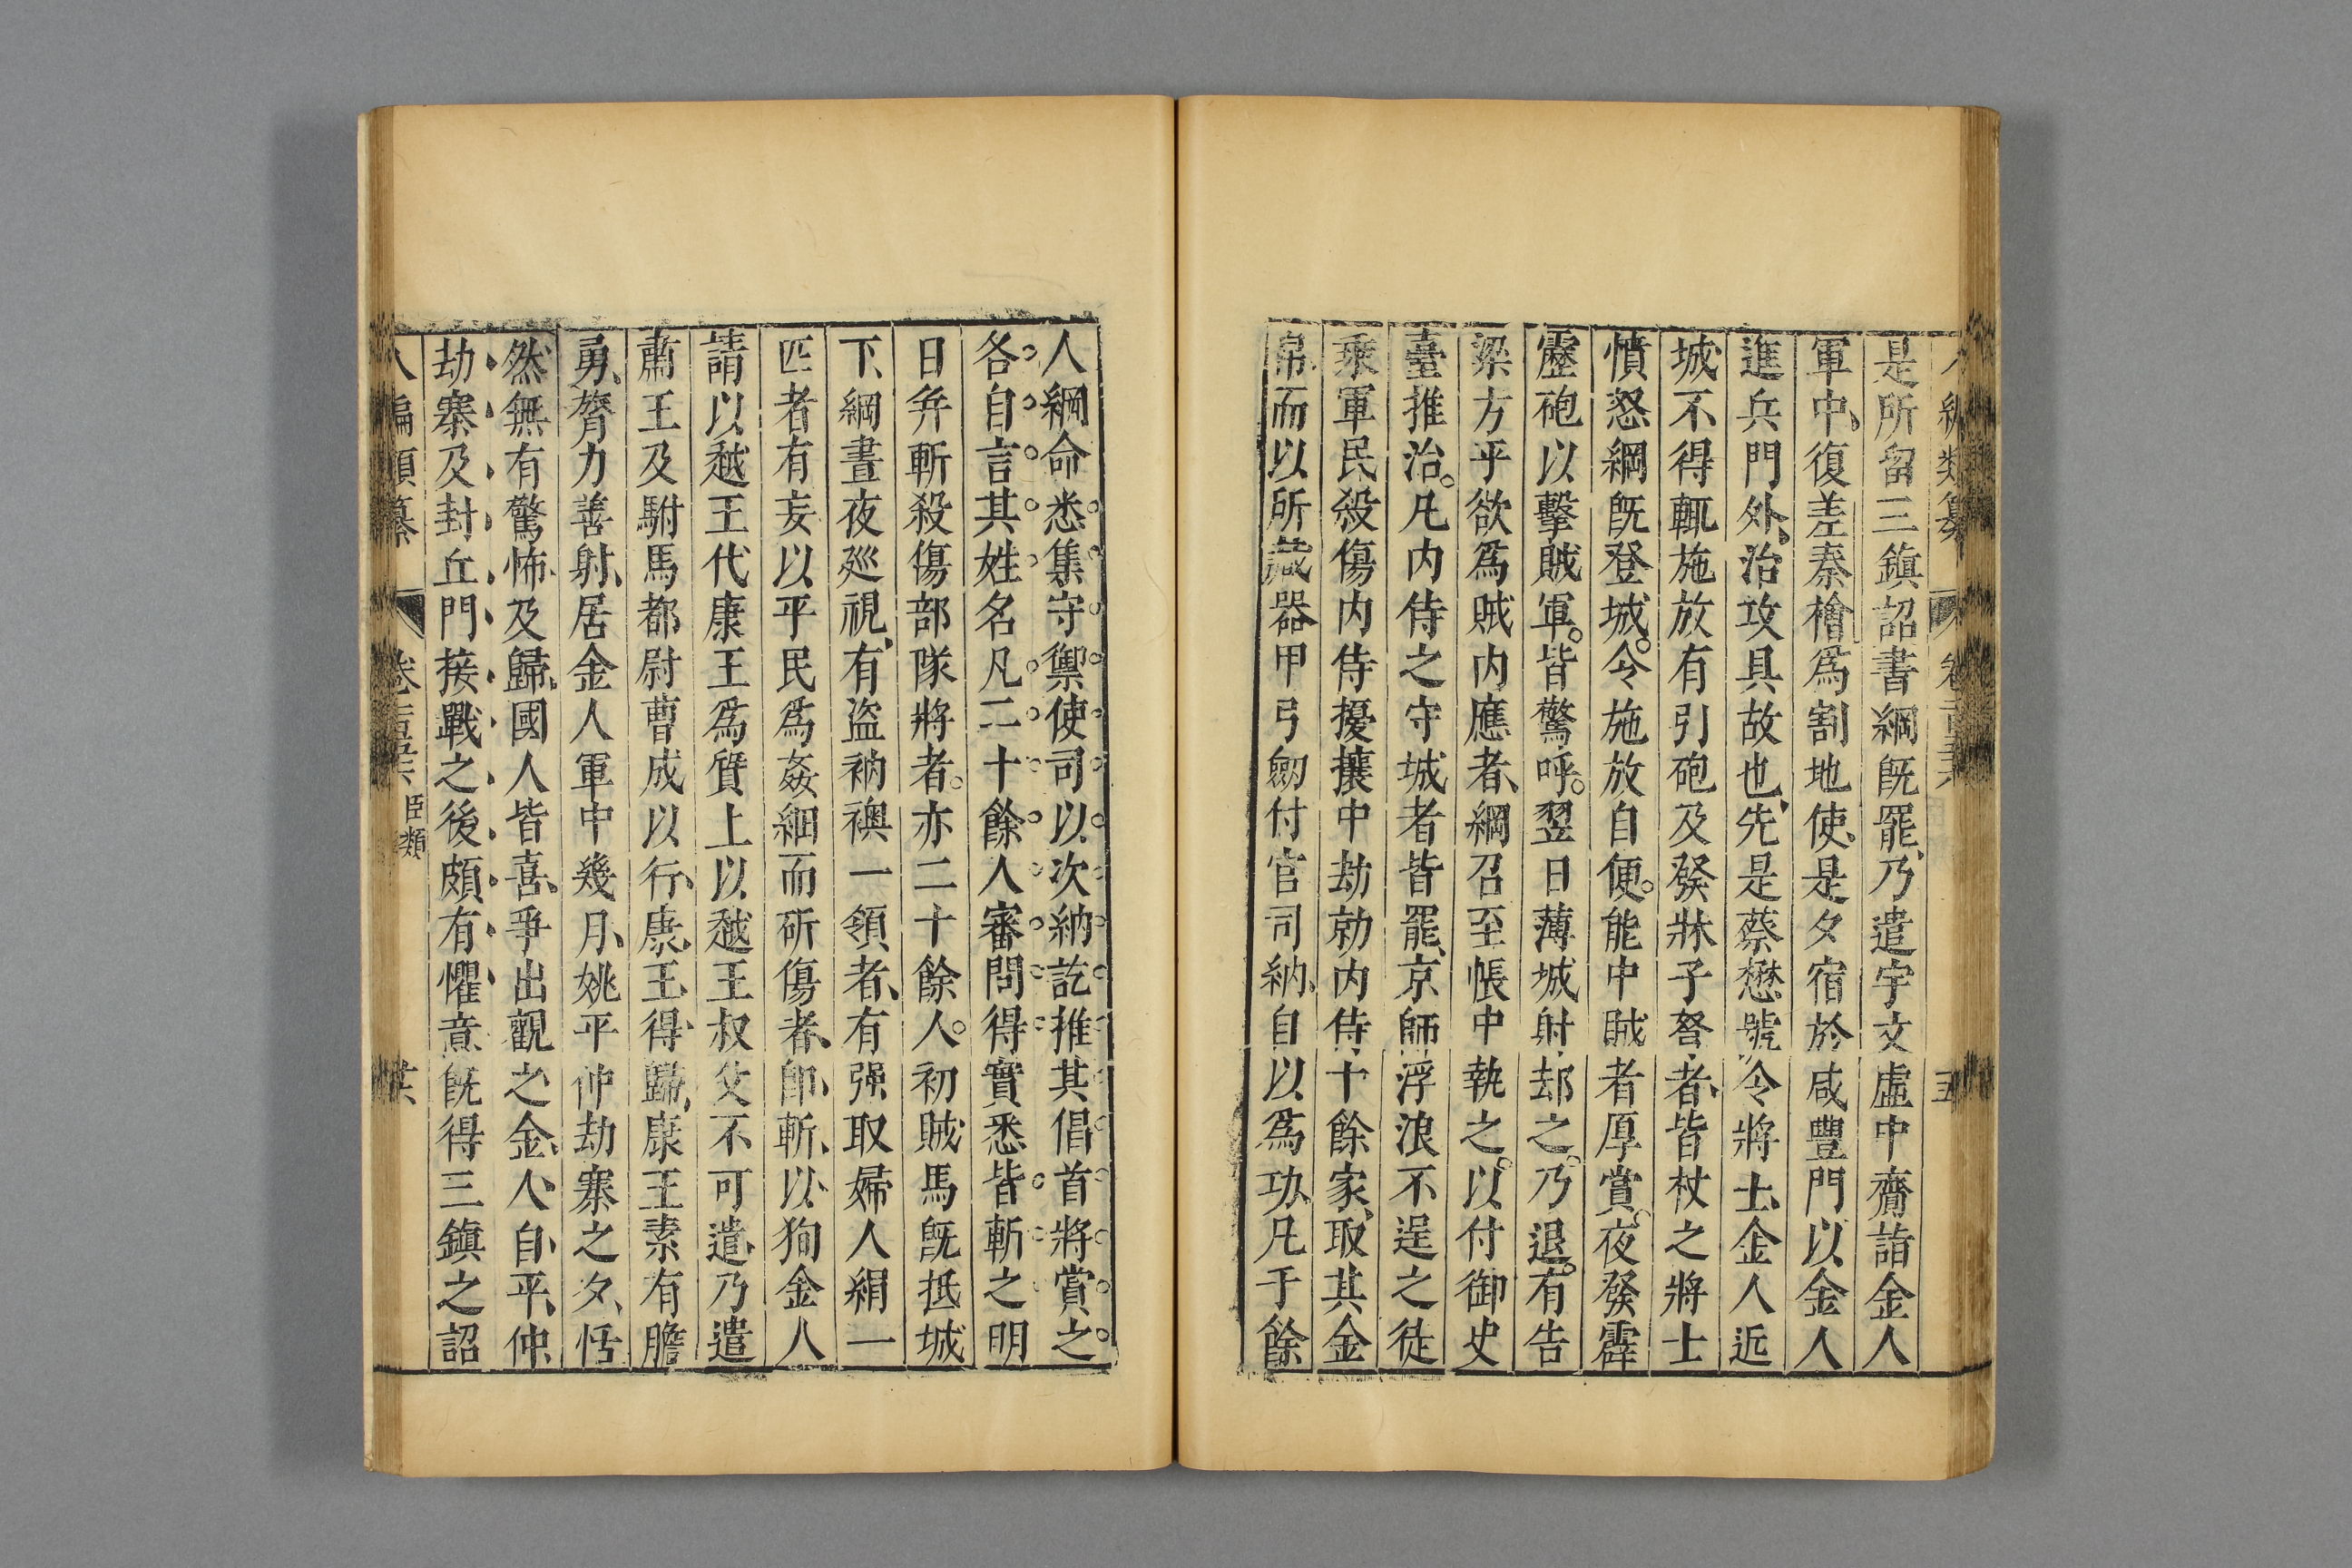 是所留三鎮詔書綱既罷乃遣宇文虛中齎詣金人
軍中復差秦檜爲割地使是夕宿於咸豐門以金人
進兵門外治攻具故也先是蔡懋號令將士金人近
城不得輒施放有引砲及發牀子弩者皆杖之將士
憤怒綱既登城令施放自便能中賊者厚賞夜發霹
靂砲以擊賊軍皆驚呼翌日薄城射却之乃退有告
梁方平欲爲賊內應者綱召至帳中執之以付御史
臺推治凡內侍之守城者皆罷京師浮浪不逞之徒
乘軍民殺傷內侍擾攘中劫掠內侍十餘家取其金
帛而以所藏器甲弓劒付官司納自以爲功凡千餘
人綱命悉集守禦使司以次納訖推其倡首將賞之
各自言其姓名凡二十餘人審問得實悉皆斬之明
日并斬殺傷部隊將者亦二十餘人初賊馬既抵城
下綱晝夜廵視有盜衲襖一領者有强取婦人絹一
匹者有妄以平民爲姦細而斫傷者卽斬以狥金人
請以越王代康王爲質上以越王叔父不可遣乃遣
肅王及駙馬都尉曹成以行康王得歸康王素有膽
勇膂力善射居金人軍中幾月姚平仲劫寨之夕恬
然無有驚怖及歸國人皆喜爭出觀之金人自平仲
劫寨及封丘門接戰之後頗有懼意既得三鎮之詔
八編類纂 卷 臣類